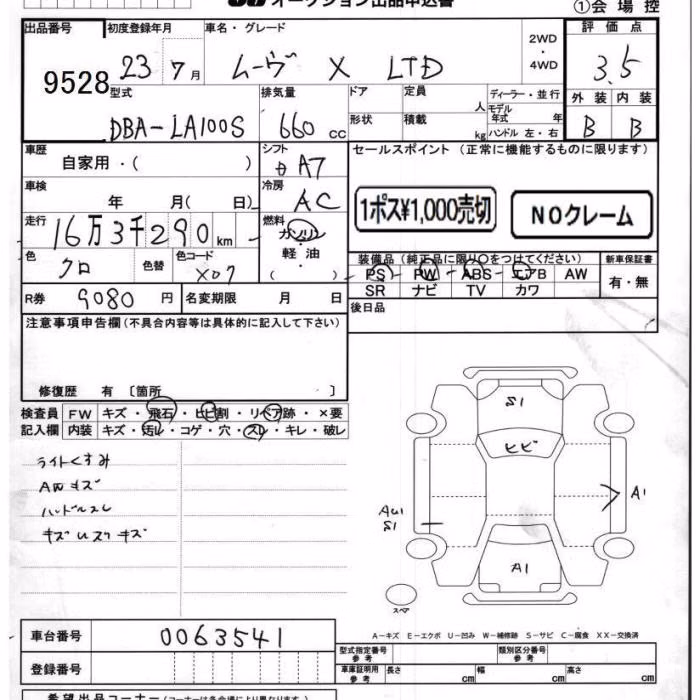 オークション出品申込書 ①会場控
出品番号 初度登録年月 車名・グレード 2WD・4WD 評価点
9528 23年7月 ムーヴ X LTD 3.5
型式 排気量 ドア 定員 人 ディーラー・並行 外装 内装
DBA-LA100S 660cc 形状 積載 kg モデル年式 年 ハンドル 左・右 B B
車歴 自家用・( ) シフト AT セールスポイント (正常に機能するものに限ります)
車検 年 月( 日) 冷房 AC
1ポス¥1,000売切 NOクレーム
走行 16万3千290km 燃料 ガソリン・軽油 ( )
色 クロ 色替 色コード X07
装備品 (純正品に限り○をつけてください) 新車保証書
PS PW ABS エアB AW 有・無
SR ナビ TV カワ
R券 9080円 名変期限 月 日 後日品
注意事項申告欄 (不具合内容等は具体的に記入して下さい)
修復歴 有 〔箇所 〕
検査員 FW キズ・飛石・ヒビ割・リペア跡・×要
記入欄 内装 キズ・汚レ・コゲ・穴・スレ・キレ・破レ
ライトくすみ
AWキズ
ハンドルスレ
S1
ヒビ
A1
S1
A1
スペア
A-キズ E-エクボ U-凹み W-補修跡 S-サビ C-腐食 XX-交換済
車台番号 0063541
型式指定番号 参考 類別区分番号 参考
登録番号 車庫証明用 参考 長さ cm 幅 cm 高さ cm
希望出品コーナー (コーナーは各会場により異なります)